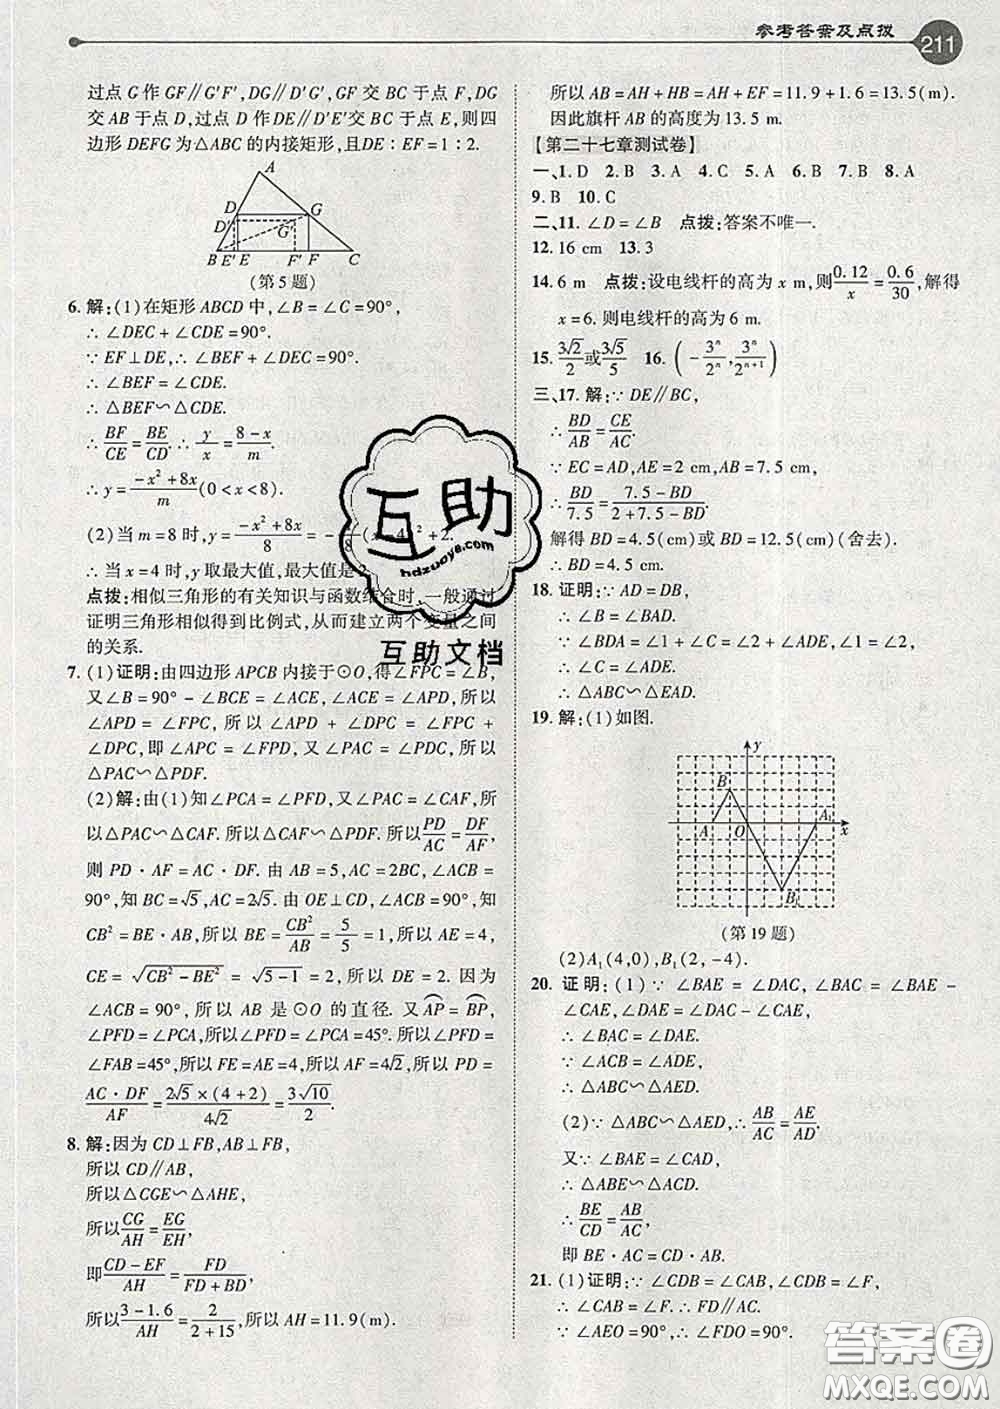 参考答案及点拨
211
过点 G 作 GF∥G′F′,DG∥D′G′,GF 交 BC 于点 F,DG
交 AB 于点 D,过点 D 作 DE∥D′E′交 BC 于点 E,则四
边形 DEFG 为△ABC 的内接矩形,且DE∶EF=1∶2.
A
D
G
D′
G′
B E′ E F′ F C
(第 5 题)
6. 解:(1)在矩形 ABCD 中,∠B=∠C=90°,
∴ ∠DEC+∠CDE=90°.
∵ EF⊥DE,∴ ∠BEF+∠DEC=90°,
∴ ∠BEF=∠CDE.
∴ △BEF∽△CDE.
∴ BF/CE=BE/CD. ∴ y/x=(8-x)/m.
∴ y=(-x²+8x)/m(0<x<8).
(2)当 m=8 时,y=(-x²+8x)/8=-1/8(x-4)²+2.
∴ 当 x=4 时,y 取最大值,最大值是2
点拨:相似三角形的有关知识与函数结合时,一般通过
证明三角形相似得到比例式,从而建立两个变量之间
的关系.
7. (1)证明:由四边形 APCB 内接于⊙O,得∠FPC=∠B,
又∠B=90°-∠BCE=∠ACE,∠ACE=∠APD,所以
∠APD=∠FPC,所以∠APD+∠DPC=∠FPC+
∠DPC,即∠APC=∠FPD,又∠PAC=∠PDC,所以
△PAC∽△PDF.
(2)解:由(1)知∠PCA=∠PFD,又∠PAC=∠CAF,所
以△PAC∽△CAF. 所以△CAF∽△PDF. 所以PD/AC=DF/AF,
则 PD·AF=AC·DF. 由 AB=5,AC=2BC,∠ACB=
90°,知 BC=√5,AC=2√5. 由 OE⊥CD,∠ACB=90°,知
CB²=BE·AB,所以 BE=CB²/AB=5/5=1,所以 AE=4,
CE=√(CB²-BE²)=√(5-1)=2,所以 DE=2. 因为
∠ACB=90°,所以 AB 是⊙O 的直径. 又AP⌒=BP⌒,
∠PFD=∠PCA,所以∠PFD=∠PCA=45°. 所以∠PFD=
∠FAB=45°,所以 FE=AE=4,所以 AF=4√2,所以 PD=
AC·DF/AF=2√5×(4+2)/4√2=3√10/2.
8. 解:因为 CD⊥FB,AB⊥FB,
所以 CD∥AB,
所以△CGE∽△AHE,
所以CG/AH=EG/EH,
即(CD-EF)/AH=FD/(FD+BD),
所以(3-1.6)/AH=2/(2+15),所以 AH=11.9(m).
所以 AB=AH+HB=AH+EF=11.9+1.6=13.5(m).
因此旗杆 AB 的高度为 13.5 m.
【第二十七章测试卷】
一、1. D 2. B 3. A 4. C 5. A 6. D 7. B 8. A
9. B 10. C
二、11. ∠D=∠B 点拨:答案不唯一.
12. 16 cm 13. 3
14. 6 m 点拨:设电线杆的高为 x m,则0.12/x=0.6/30,解得
x=6. 则电线杆的高为 6 m.
15. 3√2/2或3√5/5 16. (-3ⁿ/2ⁿ,3ⁿ/2ⁿ⁺¹)
三、17. 解:∵ DE∥BC,
∴ BD/AB=CE/AC.
∵ EC=AD,AE=2 cm,AB=7.5 cm,
∴ BD/7.5=(7.5-BD)/(2+7.5-BD).
解得 BD=4.5(cm)或 BD=12.5(cm)(舍去).
∴ BD=4.5 cm.
18. 证明:∵ AD=DB,
∴ ∠B=∠BAD.
∵ ∠BDA=∠1+∠C=∠2+∠ADE,∠1=∠2,
∴ ∠C=∠ADE.
∴ △ABC∽△EAD.
19. 解:(1)如图.
y
B
A O A₁ x
B₁
(第 19 题)
(2)A₁(4,0),B₁(2,-4).
20. 证明:(1)∵ ∠BAE=∠DAC,∠BAC=∠BAE-
∠CAE,∠DAE=∠DAC-∠CAE,
∴ ∠BAC=∠DAE.
∵ ∠ACB=∠ADE,
∴ △ABC∽△AED.
(2)∵ △ABC∽△AED,∴ AB/AC=AE/AD.
又∵ ∠BAE=∠CAD,
∴ △ABE∽△ACD.
∴ BE/CD=AB/AC,
即 BE·AC=CD·AB.
21. (1)证明:∵ ∠CDB=∠CAB,∠CDB=∠F,
∴ ∠CAB=∠F. ∴ FD∥AC.
∵ ∠AEO=90°,∴ ∠FDO=90°.
互助
hdzuoye.com
互助文档
答案卷
MXQE.COM